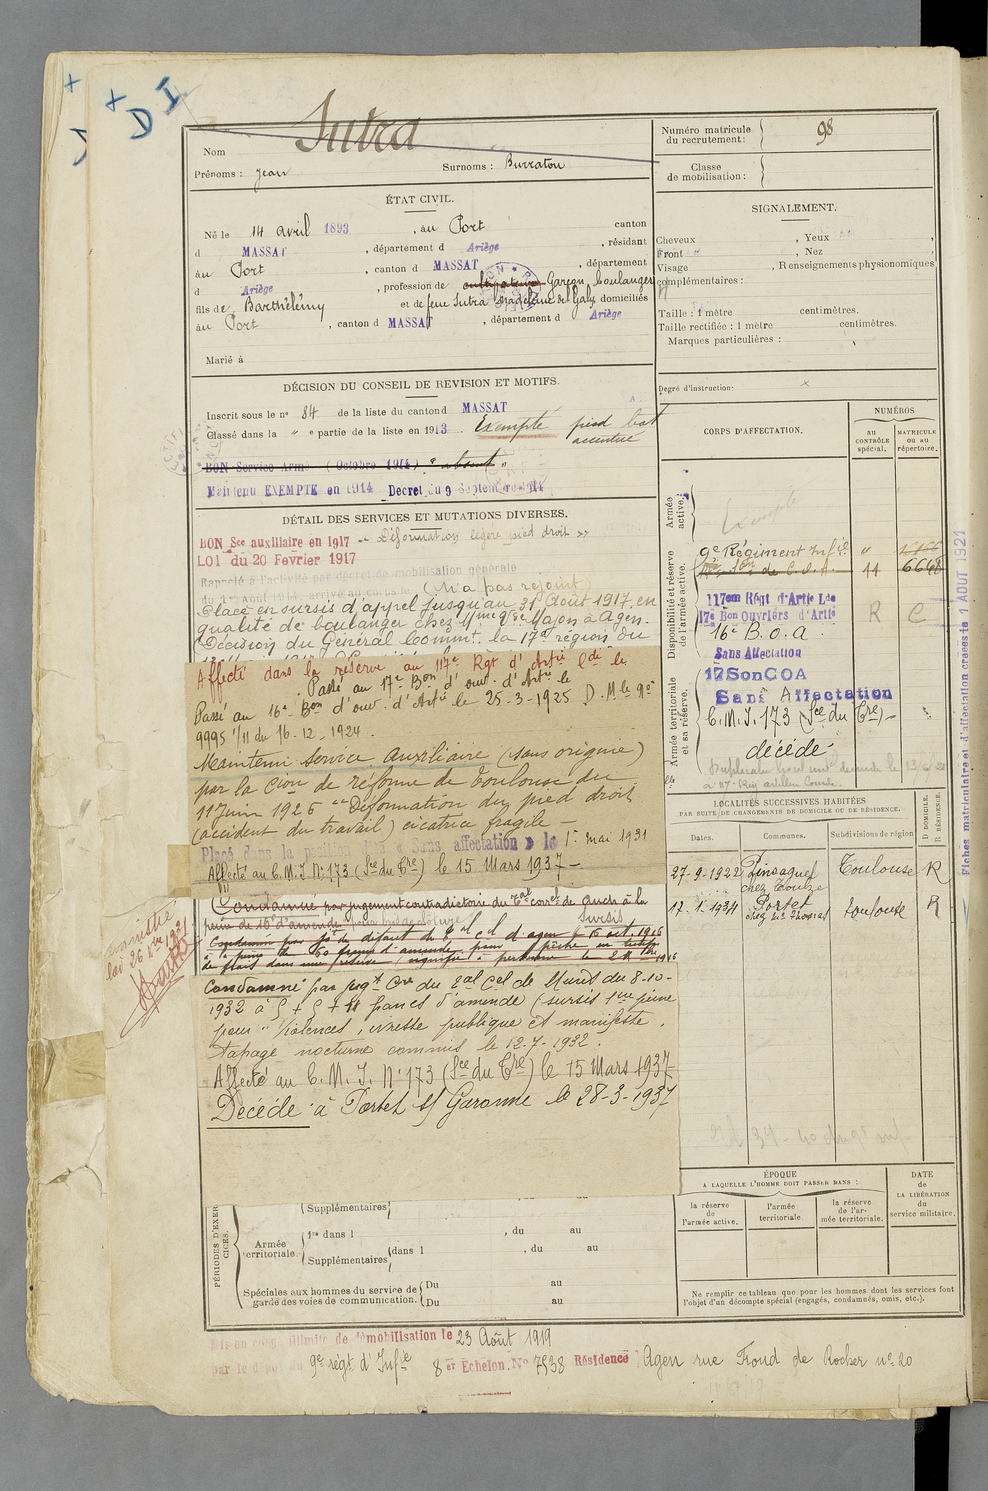 + D I
Nom Sutra
Prénoms : Jean Surnoms : Burratou
Numéro matricule du recrutement : 98
Classe de mobilisation :
ÉTAT CIVIL.
Né le 14 avril 1893, au Port canton
d MASSAT, département d Ariège, résidant
au Port, canton d MASSAT, département
d Ariège, profession de cultivateur Garçon boulanger
fils de Barthélémy et de feue Sutra Madeleine de Galy domiciliés
au Port, canton d MASSAT, département d Ariège
Marié à
SIGNALEMENT.
Cheveux , Yeux ,
Front , Nez ,
Visage , Renseignements physionomiques
complémentaires :
Taille : 1 mètre centimètres.
Taille rectifiée : 1 mètre centimètres.
Marques particulières :
Degré d'instruction: x
DÉCISION DU CONSEIL DE REVISION ET MOTIFS.
Inscrit sous le n° 84 de la liste du canton d MASSAT
Classé dans la " e partie de la liste en 1913. Exempté pied bot
accentué
BON Service Armé (Octobre 1914) " absent "
Maintenu EXEMPTÉ en 1914 Decret du 9 Septembre 1914
DÉTAIL DES SERVICES ET MUTATIONS DIVERSES.
BON Sce auxiliaire en 1917 -" Déformation légère pied droit "
LOI du 20 Fevrier 1917
Rappelé à l'activité par décret de mobilisation générale
du 1er Août 1914, arrivé au corps le (N'a pas rejoint)
Placé en sursis d'appel jusqu'au 31 Août 1917, en
qualité de boulanger chez Mme Vve Majon à Agen.
Décision du Général Commt. la 17e région du
Affecté dans la réserve au 117e Rgt d'Artie lde le
Passé au 17e Bon d'ouv. d'Artie le
Passé au 16e Bon d'ouv. d'Artie le 25-3-1925 D.M. le 90
9995 1/11 du 16-12-1924.
Maintenu Service Auxiliaire (sans origine)
par la Cion de réforme de Toulouse du
11 Juin 1926 "Déformation du pied droit
(accident du travail) cicatrice fragile -
Placé dans la position dite « Sans affectation » le 1er mai 1931
Affecté au C.M.I. N° 173 (Sce du Tre) le 15 Mars 1937 -
Condamné par jugement contradictoire du Tal correl de Auch à la
peine de 16f d'amende
Sursis
Condamné par jgt de défaut du Tal Cel d'Agen le 16 oct. 1916
à la peine de 50 francs d'amende pour pêche en temps
de frais dans une réserve, signifié à personne le
Condamné par jugt Cre du Tal Cel de Muret du 8-10-
1932 à 5 + 5 + 11 francs d'amende (sursis 1ere peine
pour "Violences, ivresse publique et manifeste,
tapage nocturne commis le 12-7-1932.
Affecté au C.M.I. N° 173 (Sce du Tre) le 15 Mars 1937
Décédé à Portet s/ Garonne le 28-3-1937
amnistié
loi 26 Dbre 1931
CORPS D'AFFECTATION.
NUMÉROS
au CONTRÔLE spécial.
MATRICULE ou au répertoire.
Armée active.
Exempté
Disponibilité et réserve de l'armée active.
9e Régiment Infie "
Son de C.O.A. 44 6668
117em Régt d'Artie Lde
17e Bon Ouvriers d'Artie R C
16e B.O.A.
Sans Affectation
Armée territoriale et sa réserve.
17 Son COA
Sans Affectation
C.M.I. 173 (Sce du Tre) -
décédé
LOCALITÉS SUCCESSIVES HABITÉES
PAR SUITE DE CHANGEMENTS DE DOMICILE OU DE RÉSIDENCE.
Dates. Communes. Subdivisions de région D DOMICILE. R RÉSIDENCE.
27-9-1922 Pinsaguel Toulouse R
chez Touze
17-1-1934 Portet Toulouse R
Fiches matriculaire et d'affectation creees le 1 AOUT 1921
ÉPOQUE
A LAQUELLE L'HOMME DOIT PASSER DANS :
la réserve de l'armée active.
l'armée territoriale.
la réserve de l'armée territoriale.
DATE de LA LIBÉRATION du service militaire.
Ne remplir ce tableau que pour les hommes dont les services font
l'objet d'un décompte spécial (engagés, condamnés, omis, etc.).
PÉRIODES D'EXERCICES.
Supplémentaires
Armée territoriale.
1re dans l , du au
Supplémentaires dans l , du au
Spéciales aux hommes du service de garde des voies de communication.
Du au
Du au
Mis en congé illimité de démobilisation le 23 Août 1919
par le dépôt du 9e régt d'Infie 8er Echelon. No 7538 Résidence Agen rue Frond de Rocher n° 20